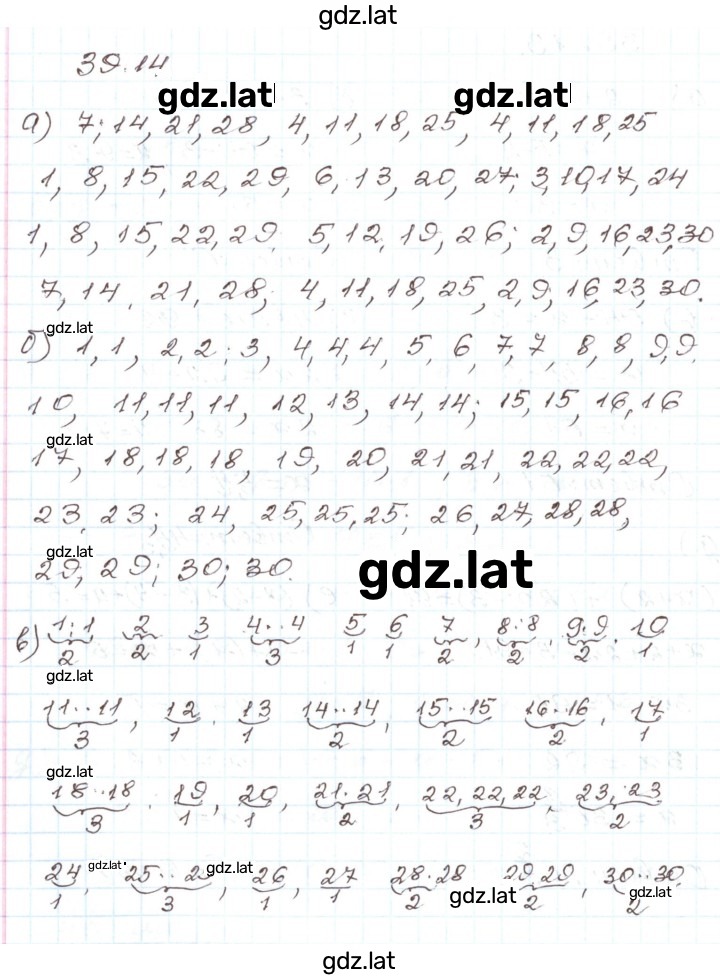 gdz.lat
39.14
gdz.lat gdz.lat
а) 7; 14, 21, 28, 4, 11, 18, 25, 4, 11, 18, 25
1, 8, 15, 22, 29, 6, 13, 20, 27; 3, 10, 17, 24
1, 8, 15, 22, 29. 5, 12, 19, 26; 2, 9, 16, 23, 30
7, 14, 21, 28; 4, 11, 18, 25, 2, 9, 16, 23, 30.
gdz.lat
б) 1, 1, 2, 2; 3, 4, 4, 4, 5, 6, 7, 7, 8, 8, 9, 9.
10, 11, 11, 11, 12, 13, 14, 14; 15, 15, 16, 16
gdz.lat
17, 18, 18, 18, 19, 20, 21, 21, 22, 22, 22,
23, 23; 24, 25, 25, 25; 26, 27, 28, 28,
gdz.lat
29, 29; 30; 30.
gdz.lat
в) 1; 1 2 3 4..4 5 6 7, 8; 8, 9; 9. 10
2 2 1 3 1 1 2 2 2 1
gdz.lat
11..11, 12. 13 14..14, 15..15 16..16, 17
3 1 1 2 2 2 1
gdz.lat
18..18. 19, 20, 21. 21, 22, 22, 22, 23, 23
3 1 1 2 3 2
24, gdz.lat 25.. 25 gdz.lat, 26, 27 28. 28 29 29, 30..30.
1 3 1 1 2 2 2
gdz.lat gdz.lat
gdz.lat